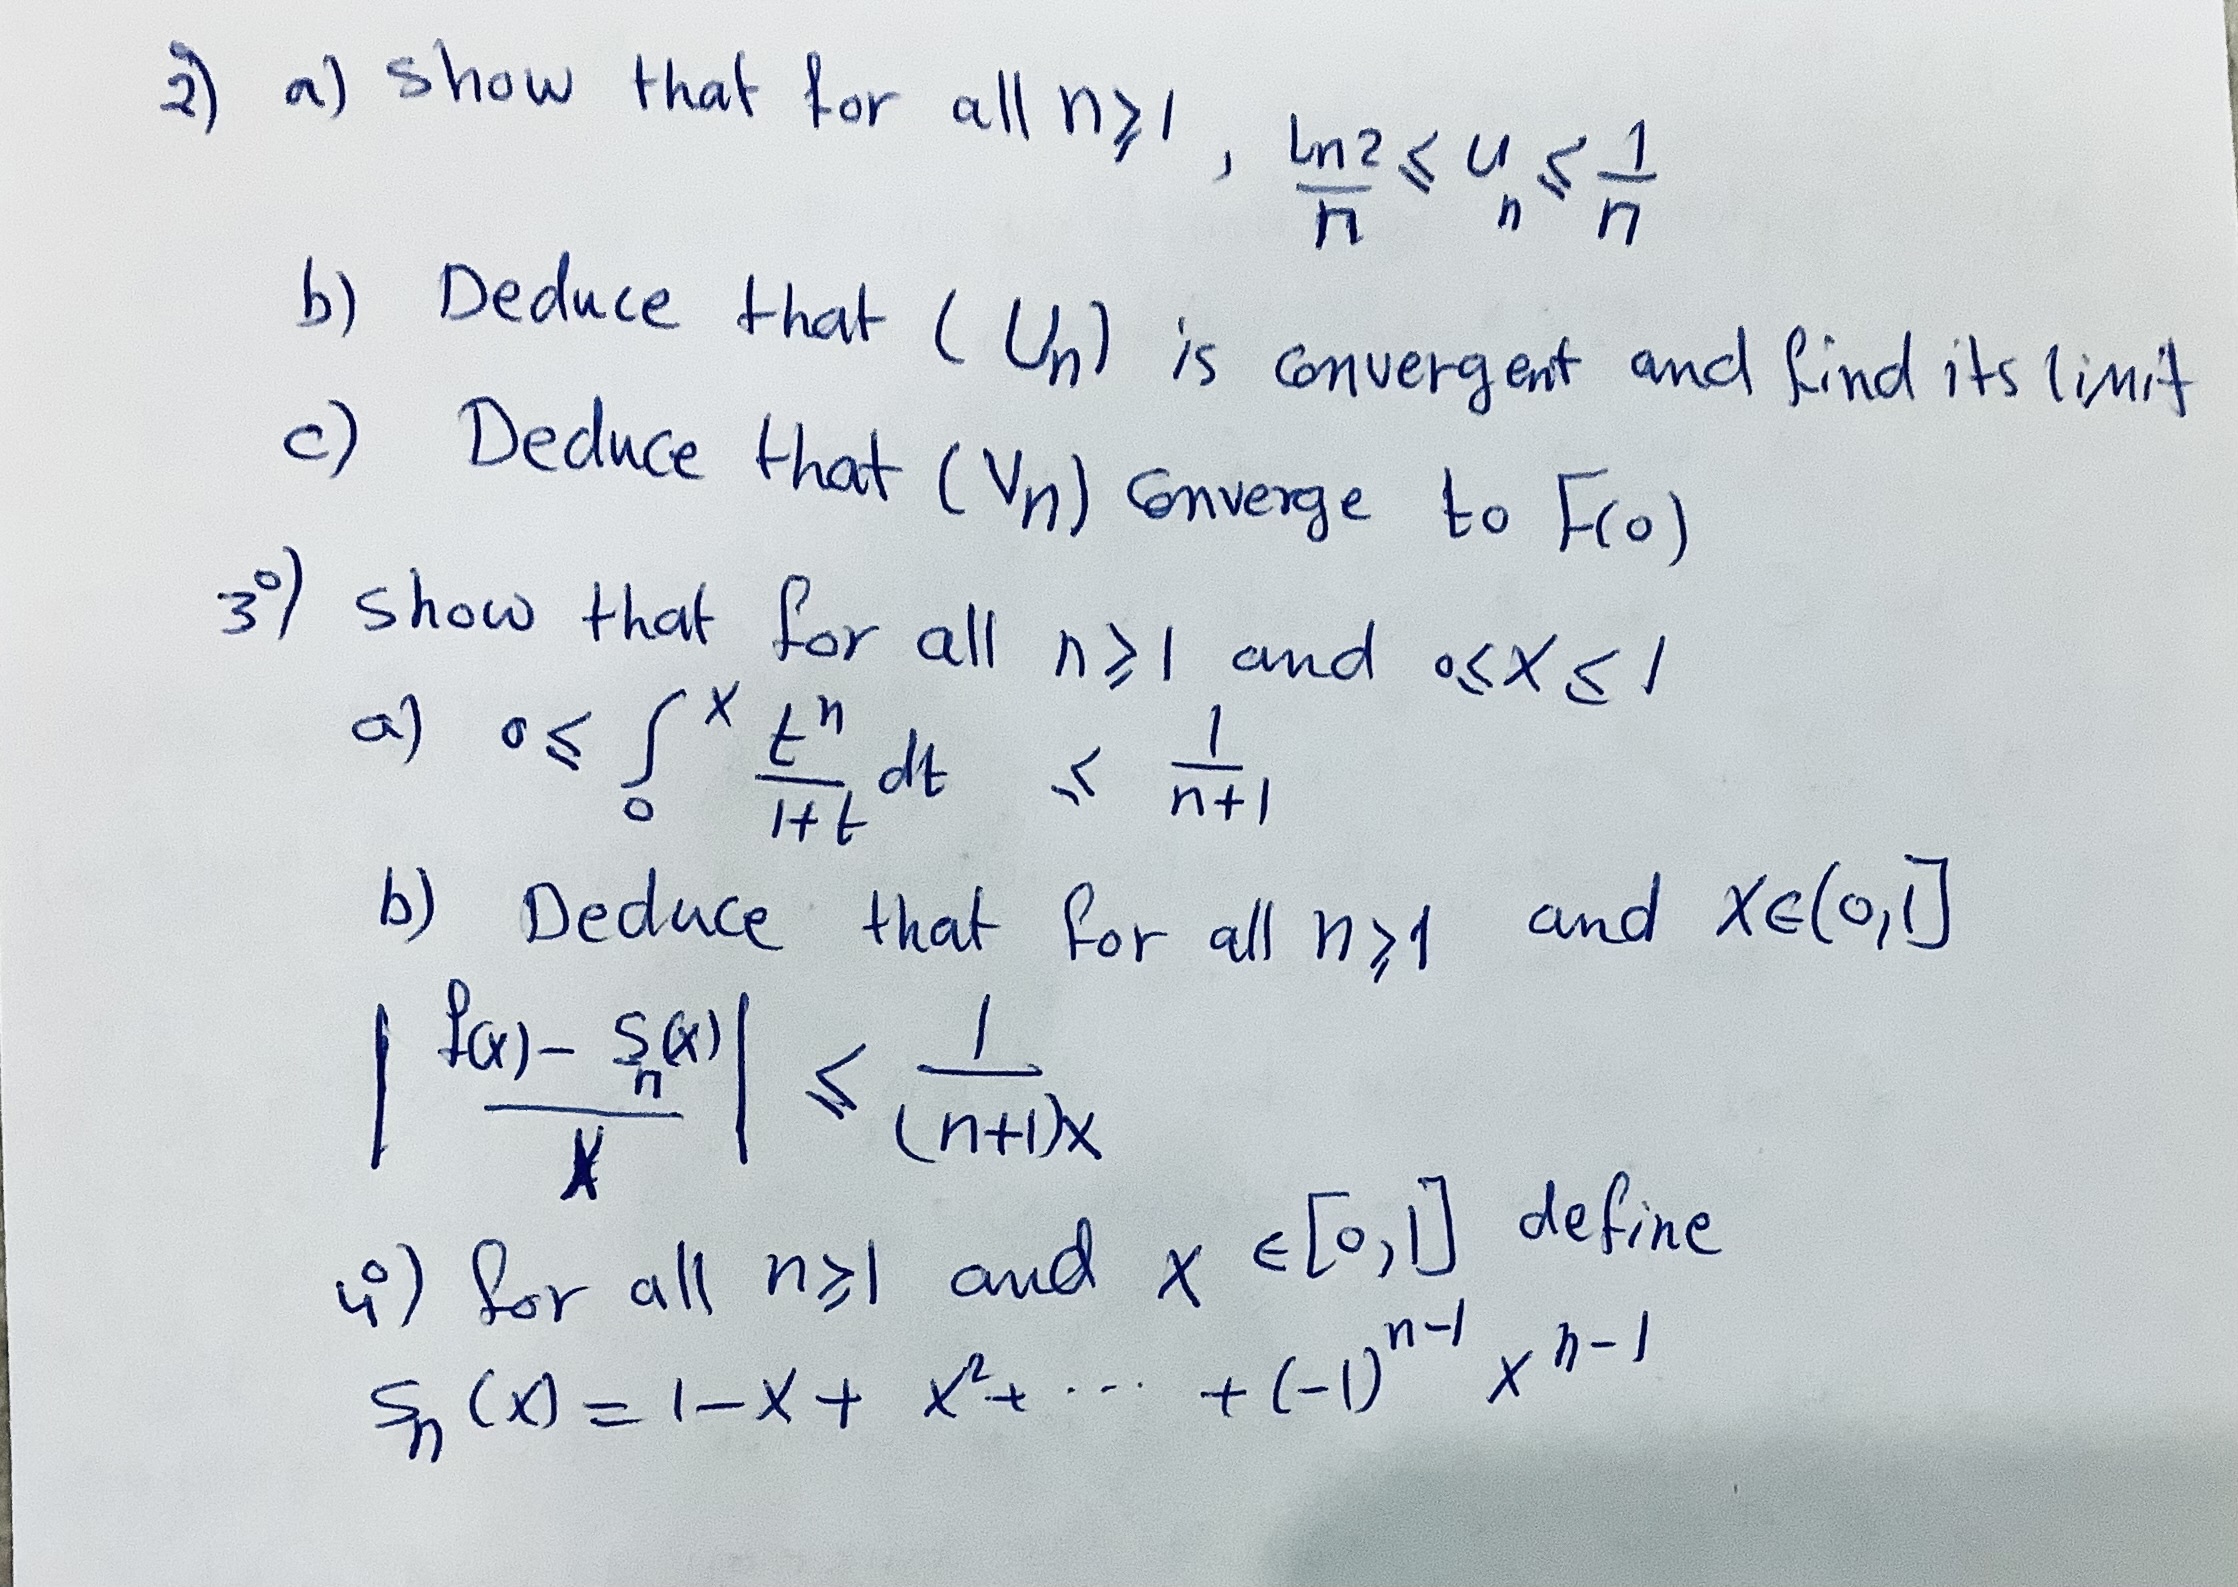 2) a) show that for all n⩾1, ln2/n ⩽ U_n ⩽ 1/n
b) Deduce that (U_n) is convergent and find its limit
c) Deduce that (V_n) converge to F(0)
3°) show that for all n⩾1 and 0⩽x⩽1
a) 0⩽ ∫_0^x t^n/(1+t) dt ⩽ 1/(n+1)
b) Deduce that for all n⩾1 and x∈(0,1]
| (f(x) - S_n(x))/x | ⩽ 1/((n+1)x)
4°) for all n⩾1 and x ∈[0,1] define
S_n(x) = 1-x+ x^2+ ... +(-1)^(n-1) x^(n-1)